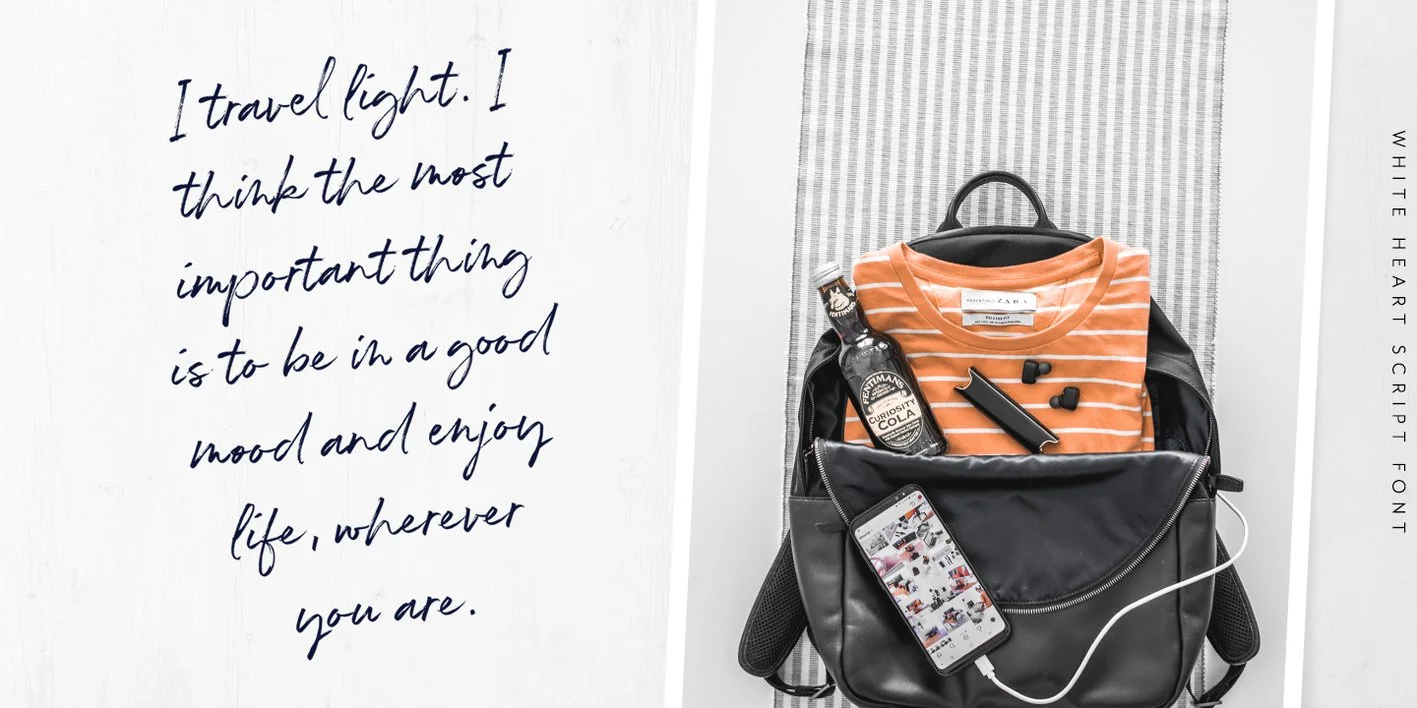 I travel light. I
think the most
important thing
is to be in a good
mood and enjoy
life, wherever
you are.
ZARA
FENTIMANS
FENTIMANS
CURIOSITY
COLA
WHITE HEART SCRIPT FONT